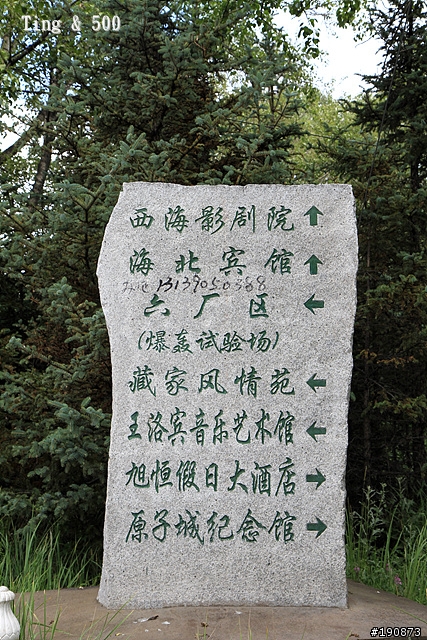 Ting & 500
西海影剧院 ↑
海北宾馆 ↑
13139050368
六厂区 ←
(爆轰试验场)
藏家风情苑 ←
王洛宾音乐艺术馆 ←
旭恒假日大酒店 →
原子城纪念馆 →
#190873